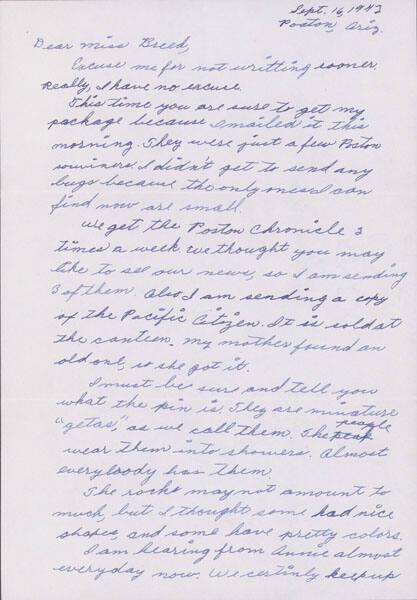 Sept. 16, 1943
Poston, Ariz.
Dear Miss Breed,
Excuse me for not writting sooner.
Really, I have no excuse.
This time you are sure to get my
package because I mailed it this
morning. They were just a few Poston
souviners. I didn't get to send any
bugs because the only ones I can
find now are small.
We get the Poston Chronicle 3
times a week. We thought you may
like to see our news, so I am sending
3 of them. Also I am sending a copy
of the Pacific Citizen. It is sold at
the canteen. My mother found an
old one, so she got it.
I must be sure and tell you
what the pin is. They are miniature
"getas", as we call them. The people
wear them into showers. Almost
everybody has them.
The rocks may not amount to
much, but I thought some had nice
shapes, and some have pretty colors.
I am hearing from Annie almost
everyday now. We certinly keep up